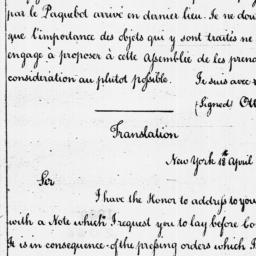 par le Paquebot arrivé en dernier lieu. Je ne dou
que l'importance des objets qui y sont traités ne
engage à proposer à cette Assemblée de les prend
considération au plutot possible.
Je suis avec
(Signed)
Translation
New York 18th April
Sir
I have the Honor to address to you
with a Note which I request you to lay before
It is in consequence of the pressing orders which I